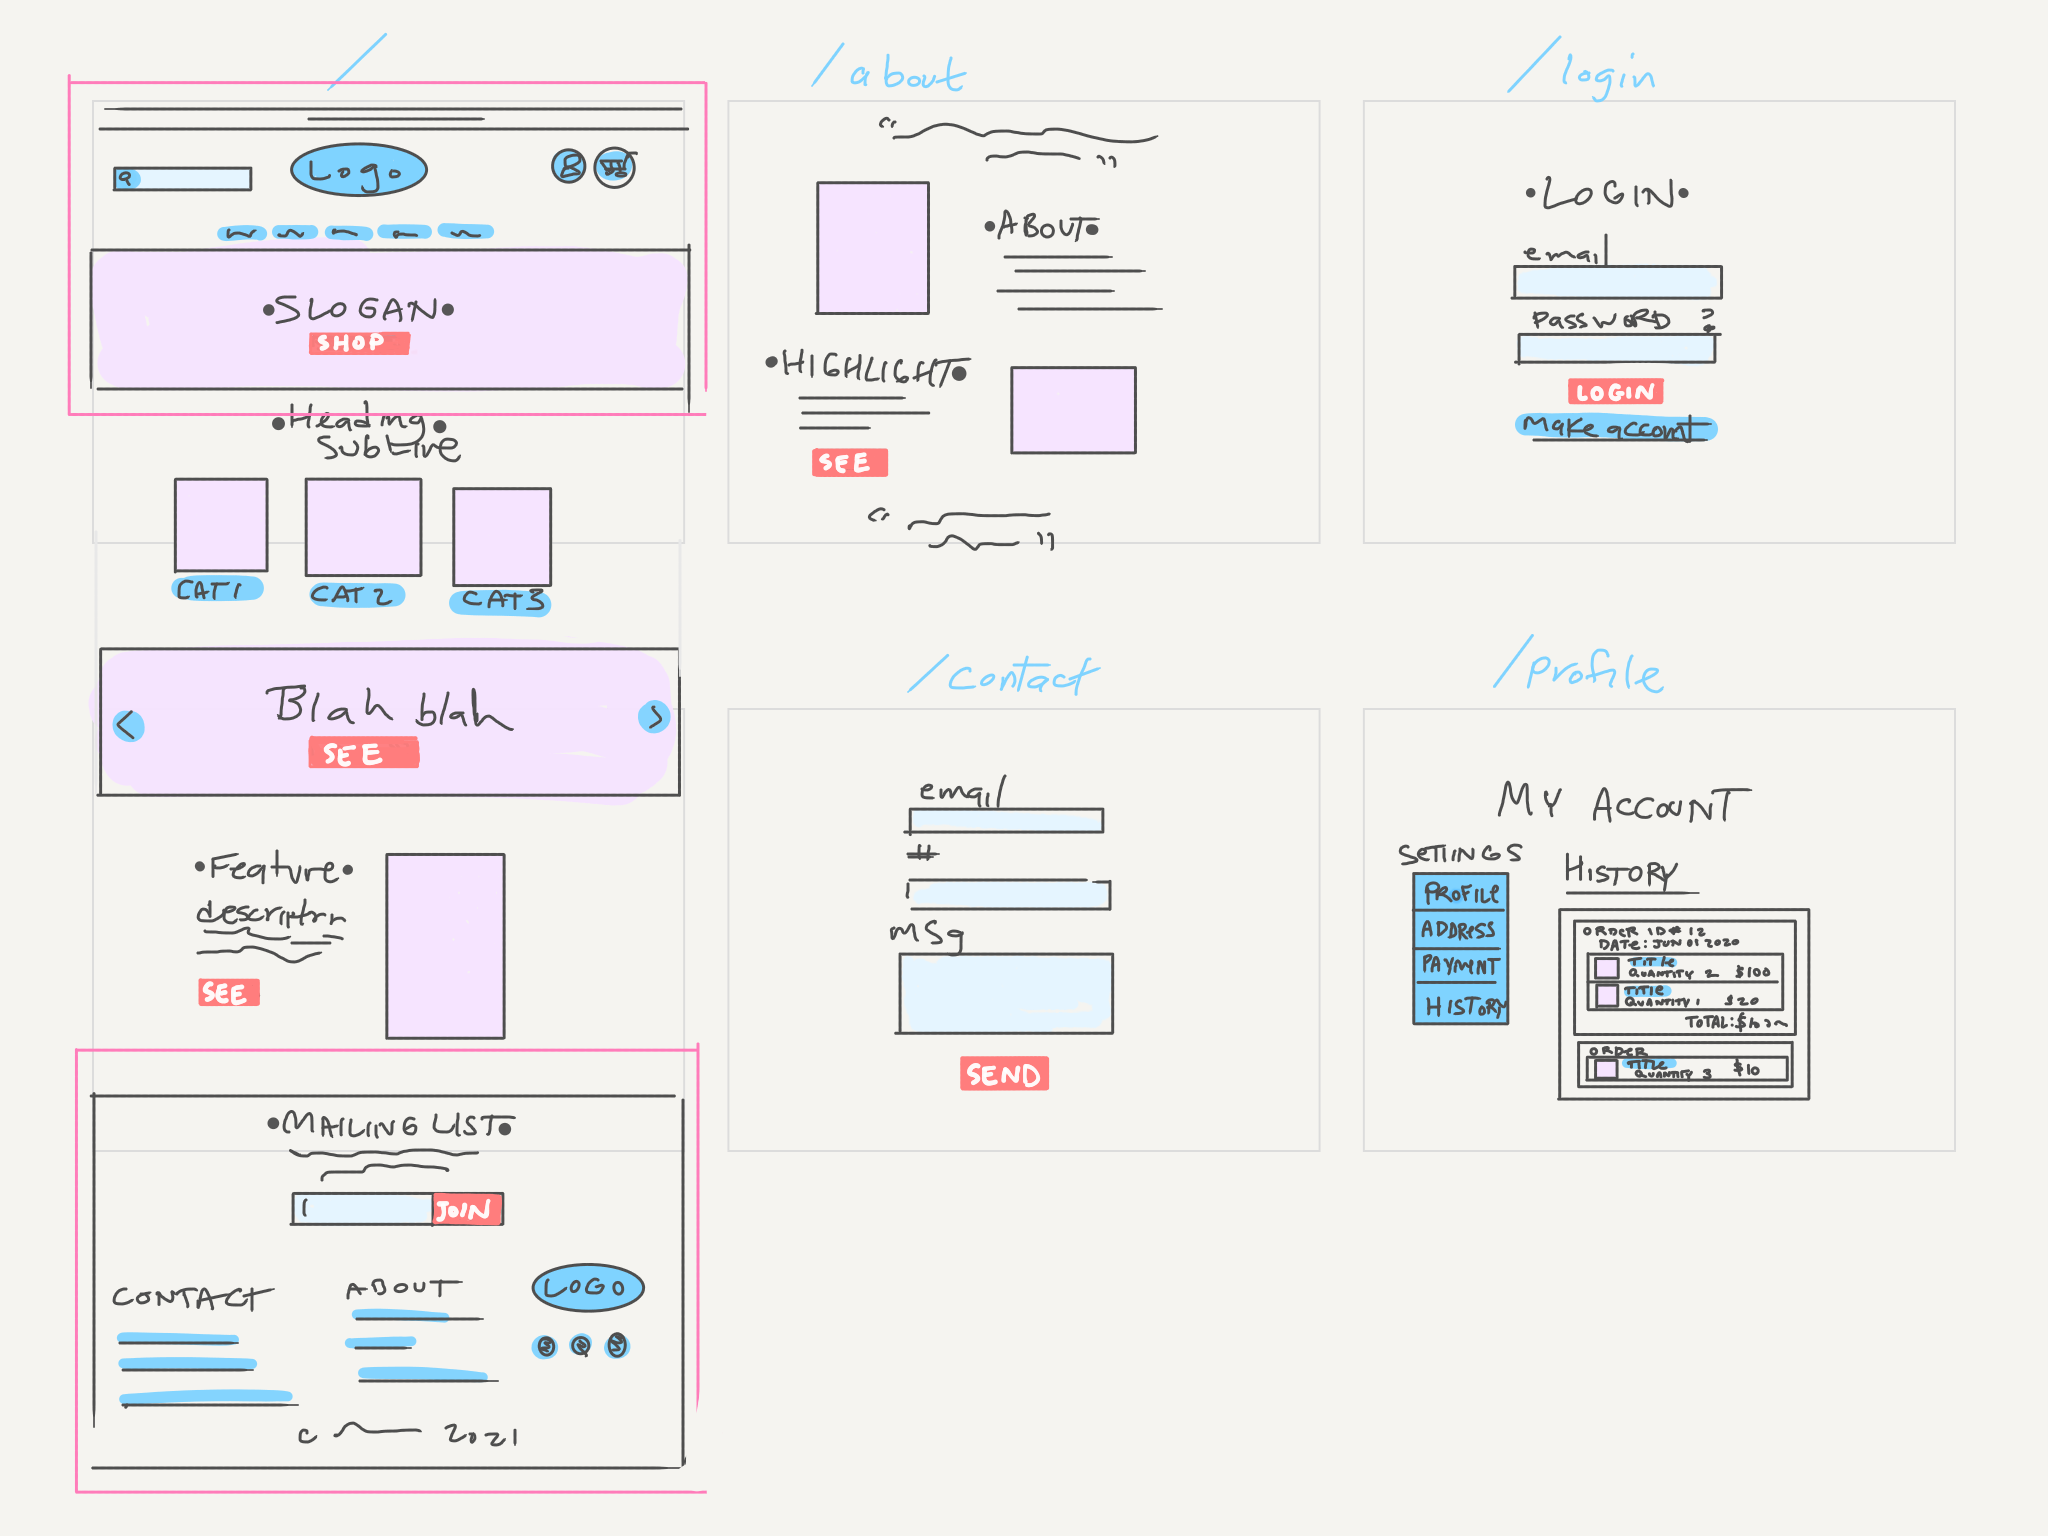 /
/about
/login
Logo
•SLOGAN•
SHOP
•Heading•
CAT1
CAT2
CAT3
Blah blah
SEE
•Feature•
SEE
•MAILING LIST•
JOIN
CONTACT
ABOUT
LOGO
2021
“
”
•ABOUT•
•HIGHLIGHT•
SEE
“
”
•LOGIN•
email
PassWORD ?
LOGIN
Make account
/contact
email
#
MSg
SEND
/profile
MY ACCOUNT
SETTINGS
PROFILE
ADDRESS
PAYMENT
HISTORY
HISTORY
ORDER ID# 12
DATE: JUN 01 2020
TITLE
QUANTITY 2 $100
TITLE
QUANTITY 1 $20
TOTAL:
ORDER
TITLE
QUANTITY 3 $10